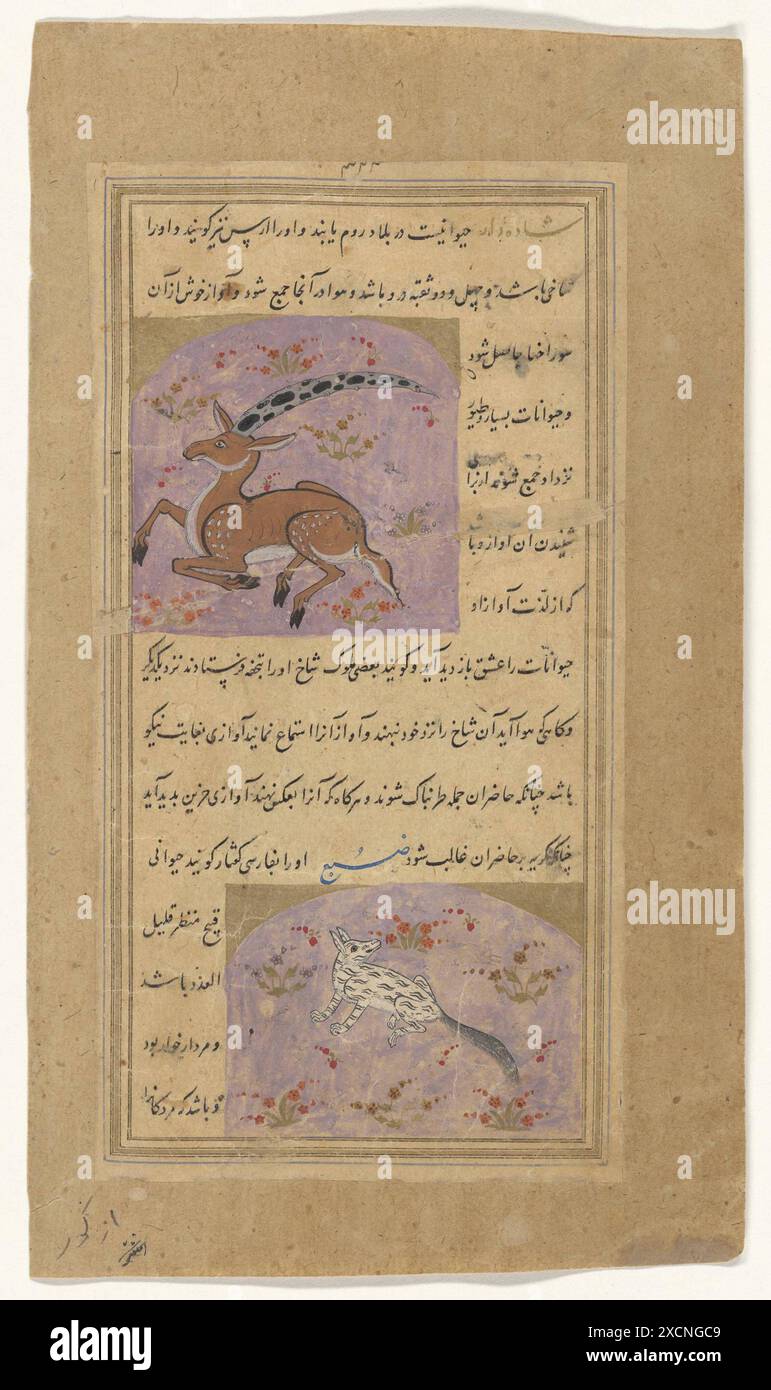 ۳۲۲
شاده‌وار حیوانیست در بلاد روم یابند و او را ارس نیز گویند و او را
شاخی باشد و چهل و دو ثقبه درو باشد و هوا در آنجا جمع شود و آواز خوش از آن
سوراخها حاصل شود
و حیوانات بسیار و طیور
نزد او جمع شوند از برا
شنیدن آن آواز و باشد
که از لذت آواز او
حیوانات را عشق باز دید آید و گویند بعضی ملوک شاخ او را تحفه فرستادند نزد یکدیگر
و کاهی هوا آید آن شاخ را نزد خود نهند و آواز آنرا استماع نمایند آوازی بغایت نیکو
باشد چنانکه حاضران جمله طربناک شوند و هرکاه که آنرا بعکس نهند آوازی حزین بدید آید
چنانکه گریه بر حاضران غالب شود ضبع او را بفارسی کفتار گویند حیوانی
قبیح منظر قلیل
العدد باشد
و مردار خوار بود
و باشد که مردکانرا
از
alamy
a
alamy
Image ID: 2XCNGC9
www.alamy.com